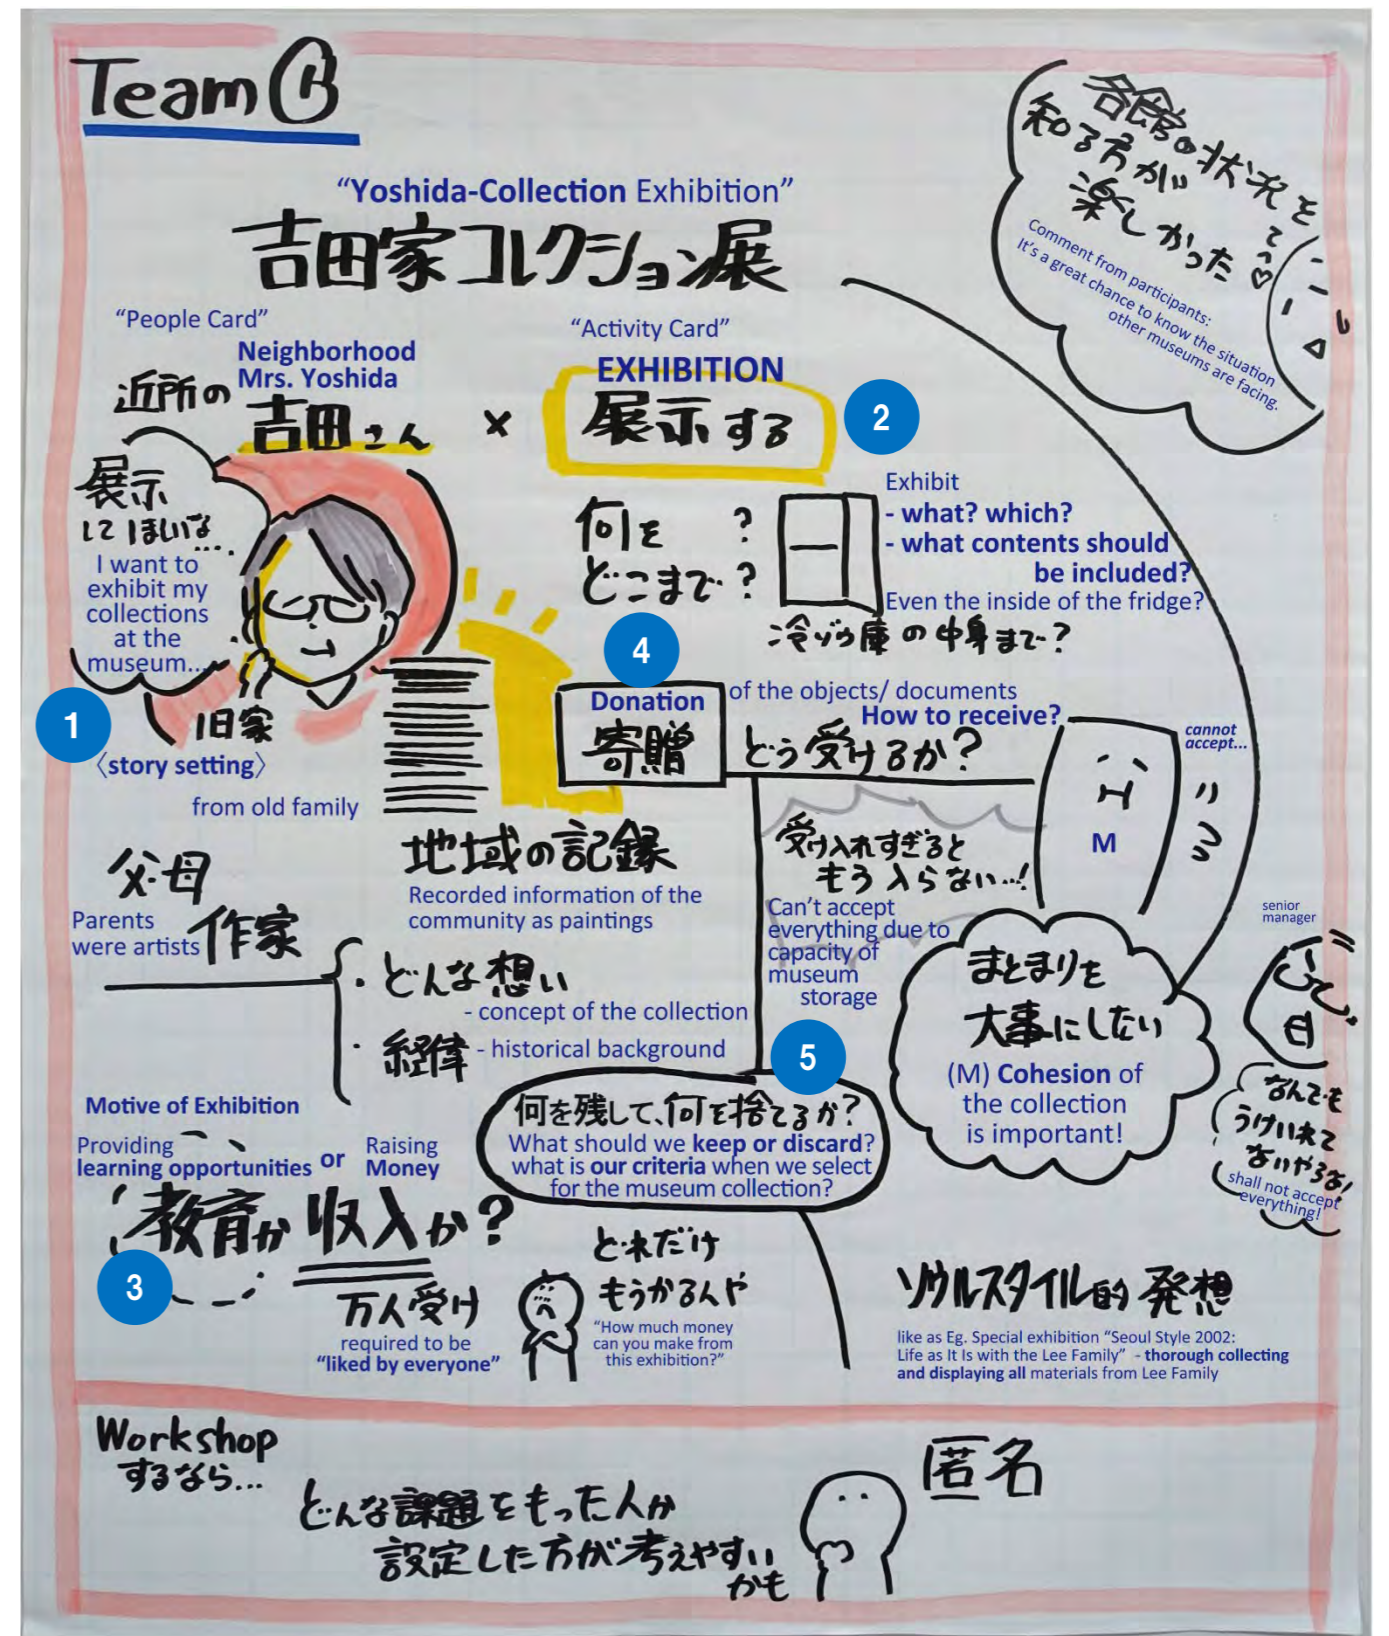 Team B
“Yoshida-Collection Exhibition”
吉田家コレクション展
各館の状況を
知る方が
楽しかった
って♡
Comment from participants:
It’s a great chance to know the situation
other museums are facing.
“People Card”
Neighborhood
Mrs. Yoshida
近所の
吉田さん
×
“Activity Card”
EXHIBITION
展示する
2
展示
してほしいな
....
I want to
exhibit my
collections
at the
museum...
1
旧家
〈story setting〉
from old family
何を ?
どこまで?
Exhibit
- what? which?
- what contents should
be included?
Even the inside of the fridge?
冷ゾウ庫の中身まで?
4
Donation
寄贈
of the objects/ documents
How to receive?
どう受けるか?
cannot
accept...
M
地域の記録
Recorded information of the
community as paintings
受け入れすぎると
もう入らない…!
Can’t accept
everything due to
capacity of
museum
storage
父・母
Parents
were artists
作家
・どんな想い
- concept of the collection
・経緯
- historical background
まとまりを
大事にしたい
(M) Cohesion of
the collection
is important!
senior
manager
なんでも
うけいれて
ないやろな!
shall not accept
everything!
5
何を残して、何を捨てるか?
What should we keep or discard?
what is our criteria when we select
for the museum collection?
Motive of Exhibition
Providing
learning opportunities
or
Raising
Money
教育か収入か?
3
万人受け
required to be
“liked by everyone”
どれだけ
もうかるんや
“How much money
can you make from
this exhibition?”
ソウルスタイル的発想
like as Eg. Special exhibition “Seoul Style 2002:
Life as It Is with the Lee Family” - thorough collecting
and displaying all materials from Lee Family
Workshop
するなら...
どんな課題をもった人か
設定した方が考えやすい
かも
匿名